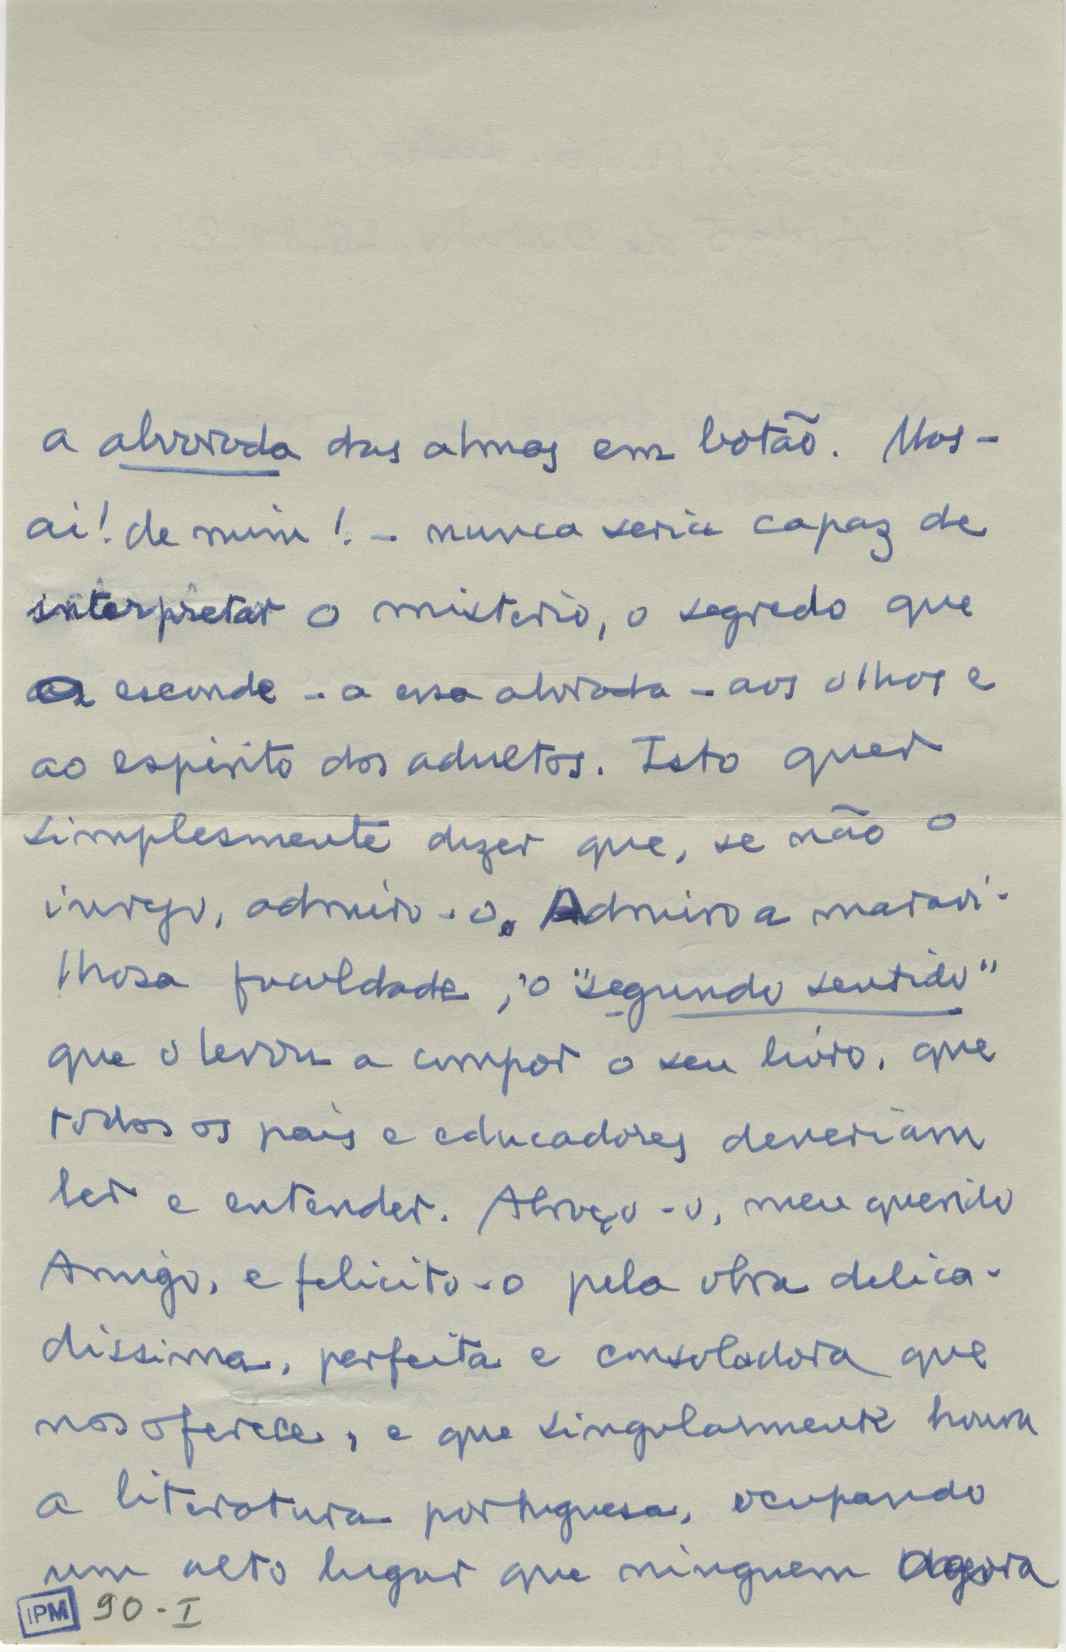 a alvorada das almas em botão. Mas -
ai! de mim! - nunca seria capaz de
interpretar o misterio, o segredo que
esconde - a essa alvorada - aos olhos e
ao espirito dos adultos. Isto quer
simplesmente dizer que, se não o
invejo, admiro-o. Admiro a maravi-
lhosa faculdade, o "segundo sentido"
que o levou a compor o seu livro, que
todos os pais e educadores deveriam
ler e entender. Abraço-o, meu querido
Amigo, e felicito-o pela obra delica-
dissima, perfeita e consoladora que
nos oferece, e que singularmente honra
a literatura portuguesa, ocupando
um alto lugar que ninguem agora
IPM 90-I